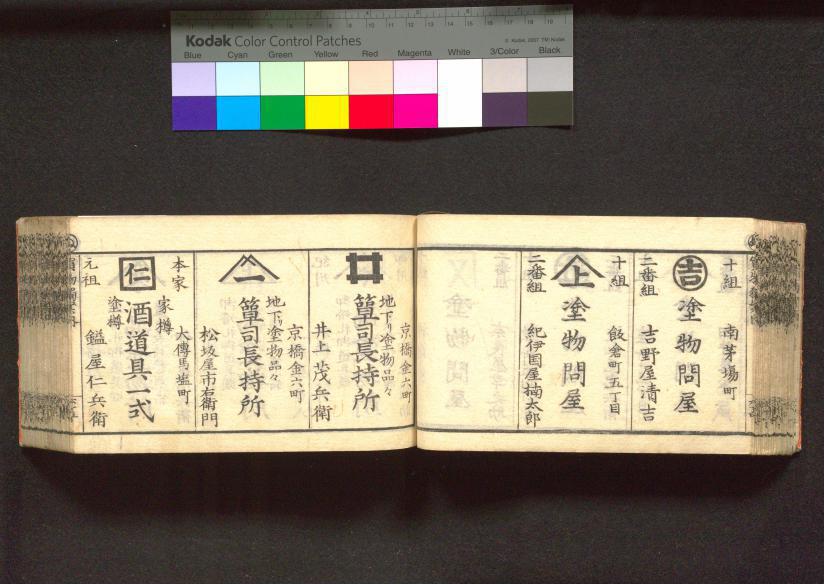 Kodak Color Control Patches
© Kodak, 2007 TM: Kodak
Blue Cyan Green Yellow Red Magenta White 3/Color Black
十組
南茅場町
吉
塗物問屋
二番組
吉野屋清吉
十組
飯倉町五丁目
上
塗物問屋
二番組
紀伊国屋楠太郎
京橋金六町
地下り塗物品々
井
簞司長持所
井上茂兵衛
京橋金六町
地下り塗物品々
一
簞司長持所
松坂屋市右衛門
本家
大傳馬塩町
家樽
仁
酒道具一式
塗樽
元祖
鎰屋仁兵衛